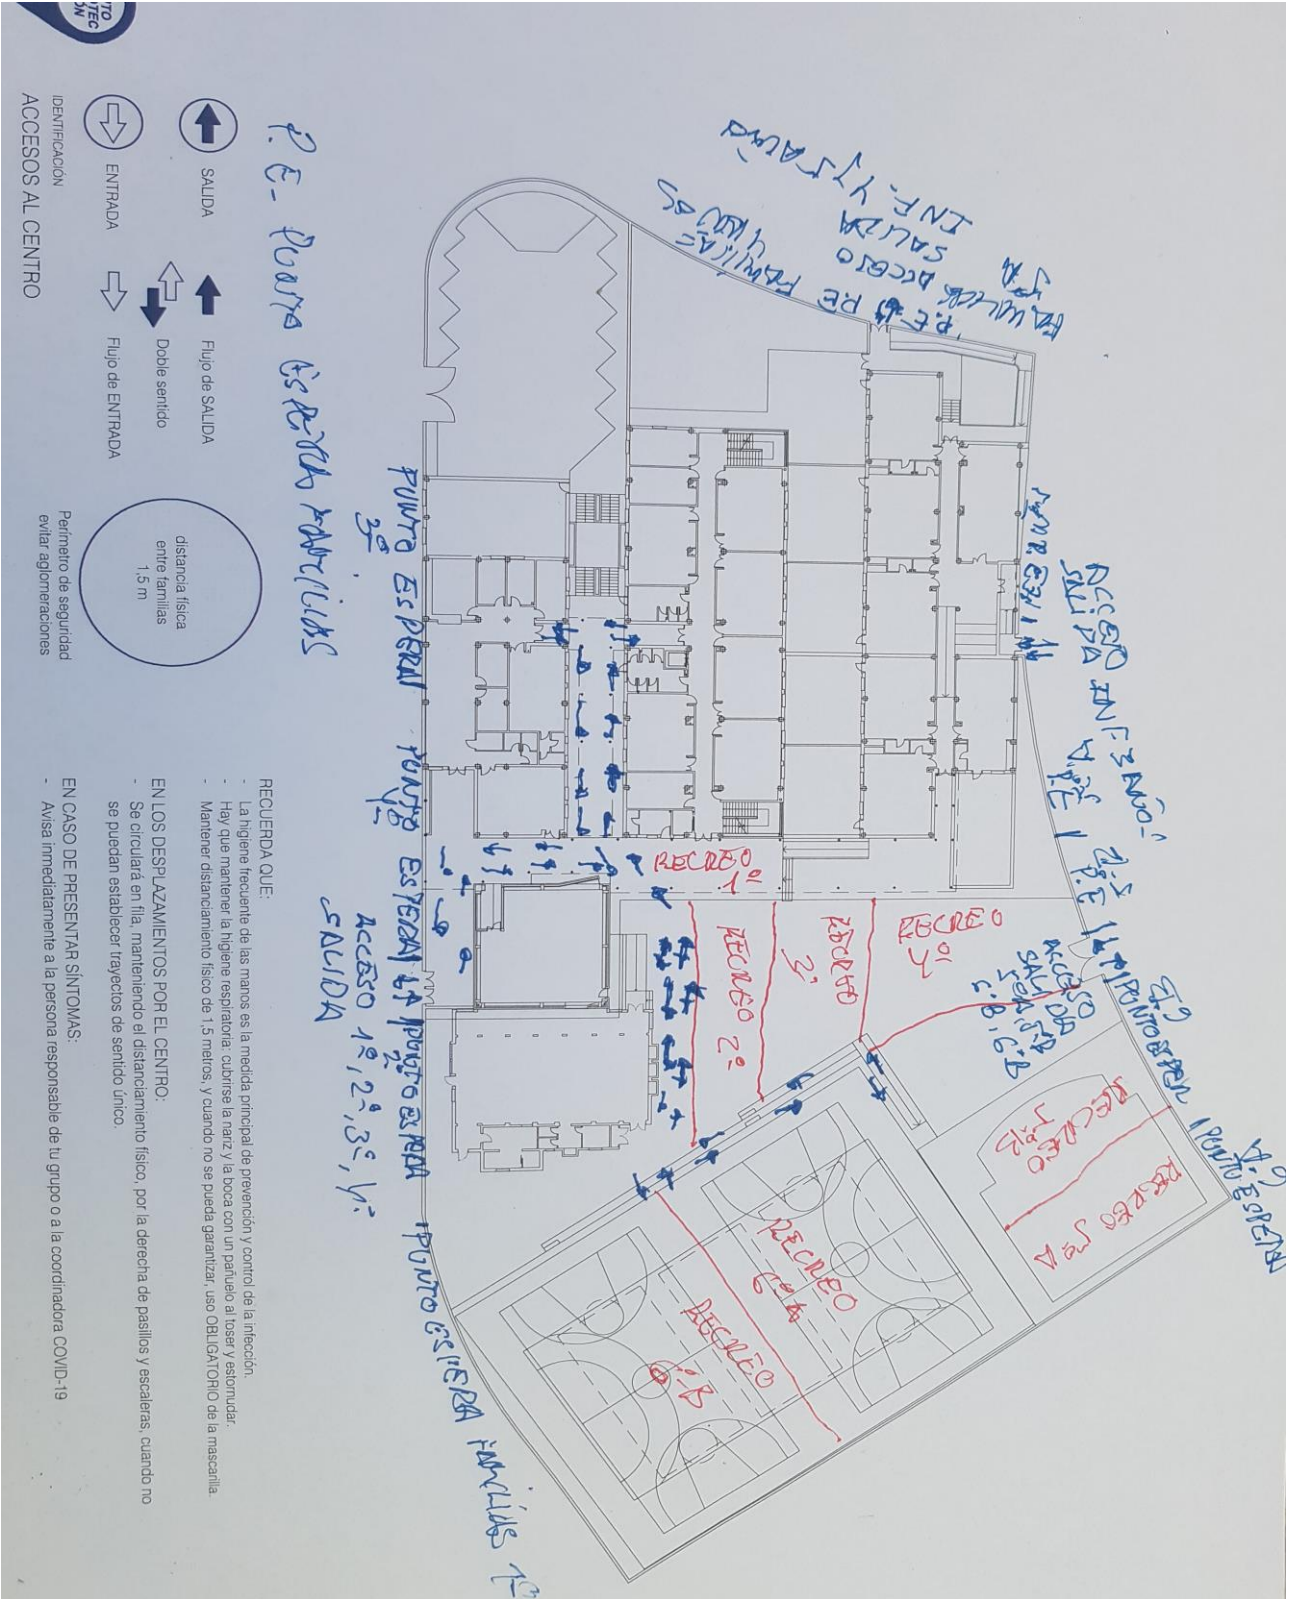 ACCESOS AL CENTRO
IDENTIFICACIÓN
ENTRADA
Flujo de ENTRADA
Doble sentido
SALIDA
Flujo de SALIDA
distancia física
entre familias
1,5 m
Perímetro de seguridad
evitar aglomeraciones
RECUERDA QUE:
- La higiene frecuente de las manos es la medida principal de prevención y control de la infección.
- Hay que mantener la higiene respiratoria: cubrirse la nariz y la boca con un pañuelo al toser y estornudar.
- Mantener distanciamiento físico de 1,5 metros, y cuando no se pueda garantizar, uso OBLIGATORIO de la mascarilla.
EN LOS DESPLAZAMIENTOS POR EL CENTRO:
- Se circulará en fila, manteniendo el distanciamiento físico, por la derecha de pasillos y escaleras, cuando no
se puedan establecer trayectos de sentido único.
EN CASO DE PRESENTAR SÍNTOMAS:
- Avisa inmediatamente a la persona responsable de tu grupo o a la coordinadora COVID-19
P.E- PUNTO ESPERA FAMILIAS
PUNTO ESPERA
3º
PUNTO ESPERA
PUNTO ESPERA
2º
PUNTO ESPERA FAMILIAS 1º
ACCESO 1º, 2º, 3º, 4º
SALIDA
INF. 4 y 5 AÑOS
SALIDA
ACCESO
FAMILIAS
P.E
FAMILIAS
4 AÑOS
ACCESO INF 3 AÑOS
SALIDA
P.E
P.E
ACCESO
SALIDA
PUNTO ESPERA
RECREO
1º
RECREO 2º
RECREO
3º
RECREO
4º
RECREO
RECREO 5ºA
RECREO
6ºA
RECREO
6º B